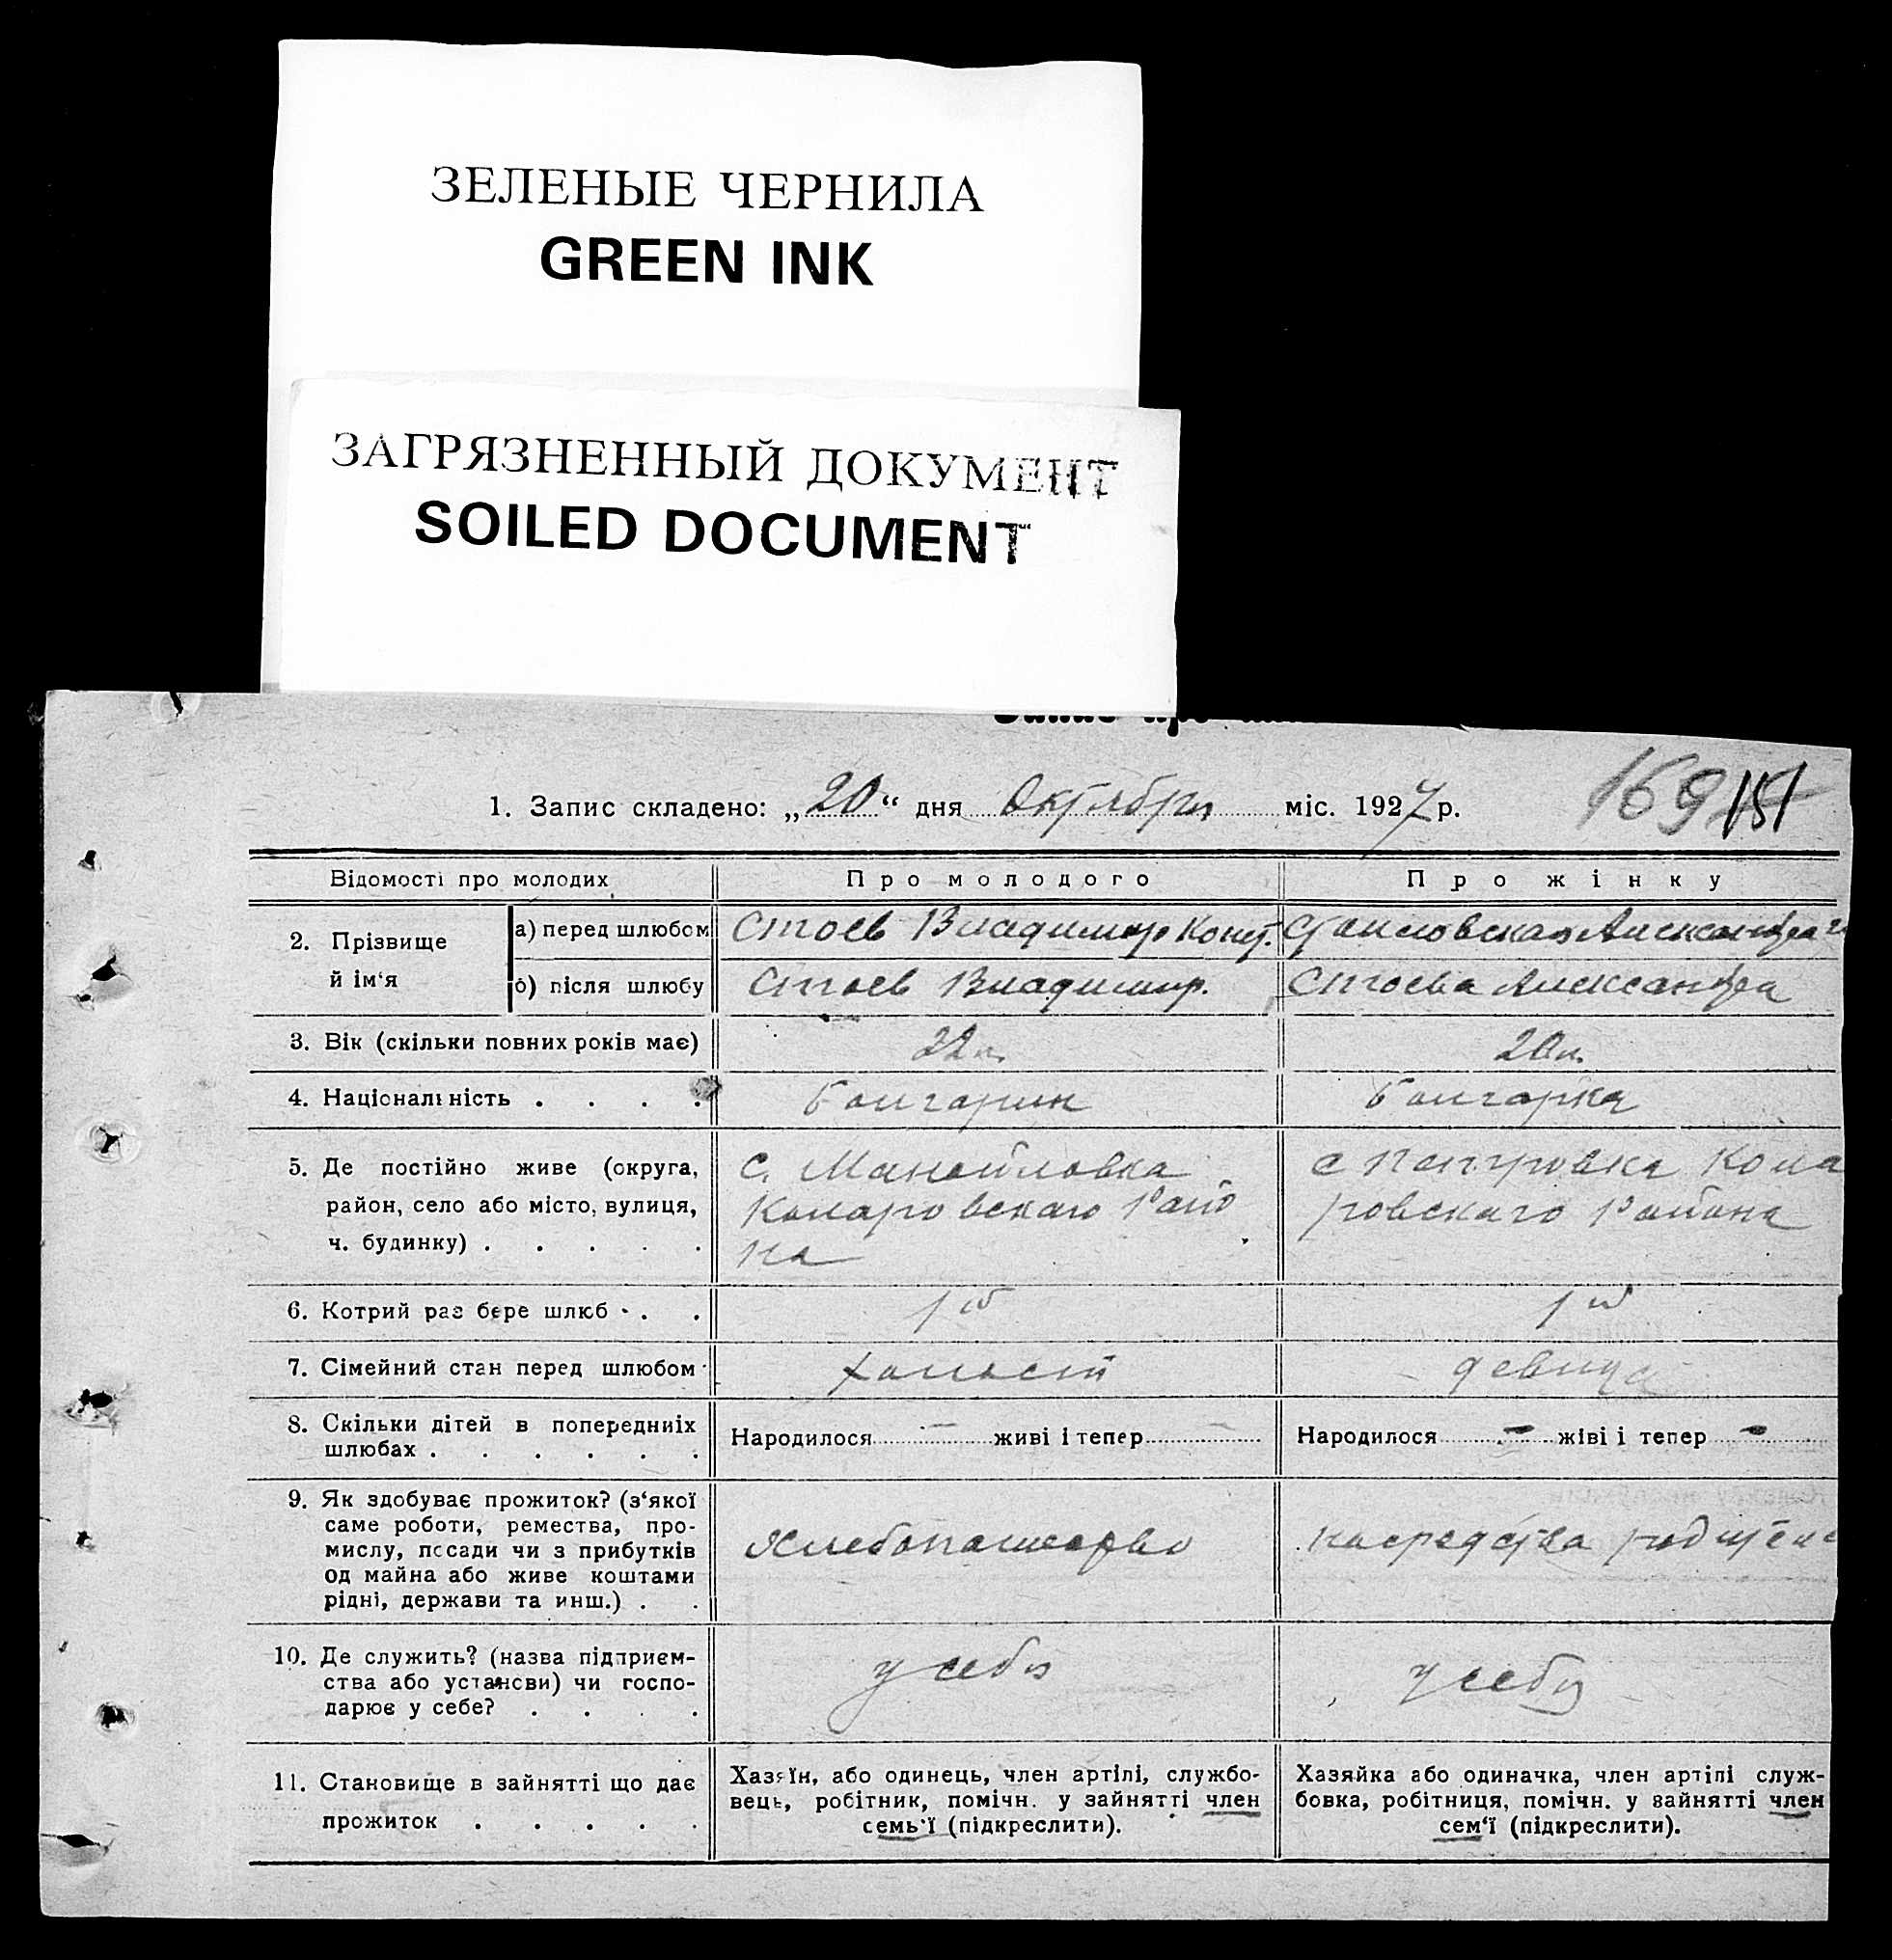 ЗЕЛЕНЫЕ ЧЕРНИЛА
GREEN INK
ЗАГРЯЗНЕННЫЙ ДОКУМЕНТ
SOILED DOCUMENT
169 151
1. Запис складено: „20“ дня Октября міс. 1927 р.
Відомості про молодих
Про молодого
Про жінку
2. Прізвище й ім‘я
а) перед шлюбом
Стоев Владимир Конст.
Александра
б) після шлюбу
Стоев Владимир.
Стоева Александра
3. Вік (скільки повних років має)
22 л.
20 л.
4. Національність . . . .
болгарин
болгарка
5. Де постійно живе (округа,
район, село або місто, вулиця,
ч. будинку) . . . . .
с. Манойловка
Коларовскаго Райо
на
с Кола
ровскаго Района
6. Котрий раз бере шлюб . . .
1й
1й
7. Сімейний стан перед шлюбом
холост
девица
8. Скільки дітей в попередниіх
шлюбах . . . . . .
Народилося — живі і тепер —
Народилося — жіві і тепер —
9. Як здобуває прожиток? (з‘якої
саме роботи, ремества, про-
мислу, посади чи з прибутків
од майна або живе коштами
рідні, держави та инш.) . .
Хлебопашество
на средства родителе
10. Де служить? (назва підприєм-
ства або установи) чи госпо-
дарює у себе? . . . .
у себя
у себя
11. Становище в зайнятті що дає
прожиток . . . . .
Хазяїн, або одинець, член артілі, службо-
вець, робітник, помічн. у зайнятті член
семь‘ї (підкреслити).
Хазяйка або одиначка, член артілі служ-
бовка, робітниця, помічн. у зайнятті член
сем‘ї (підкреслити).